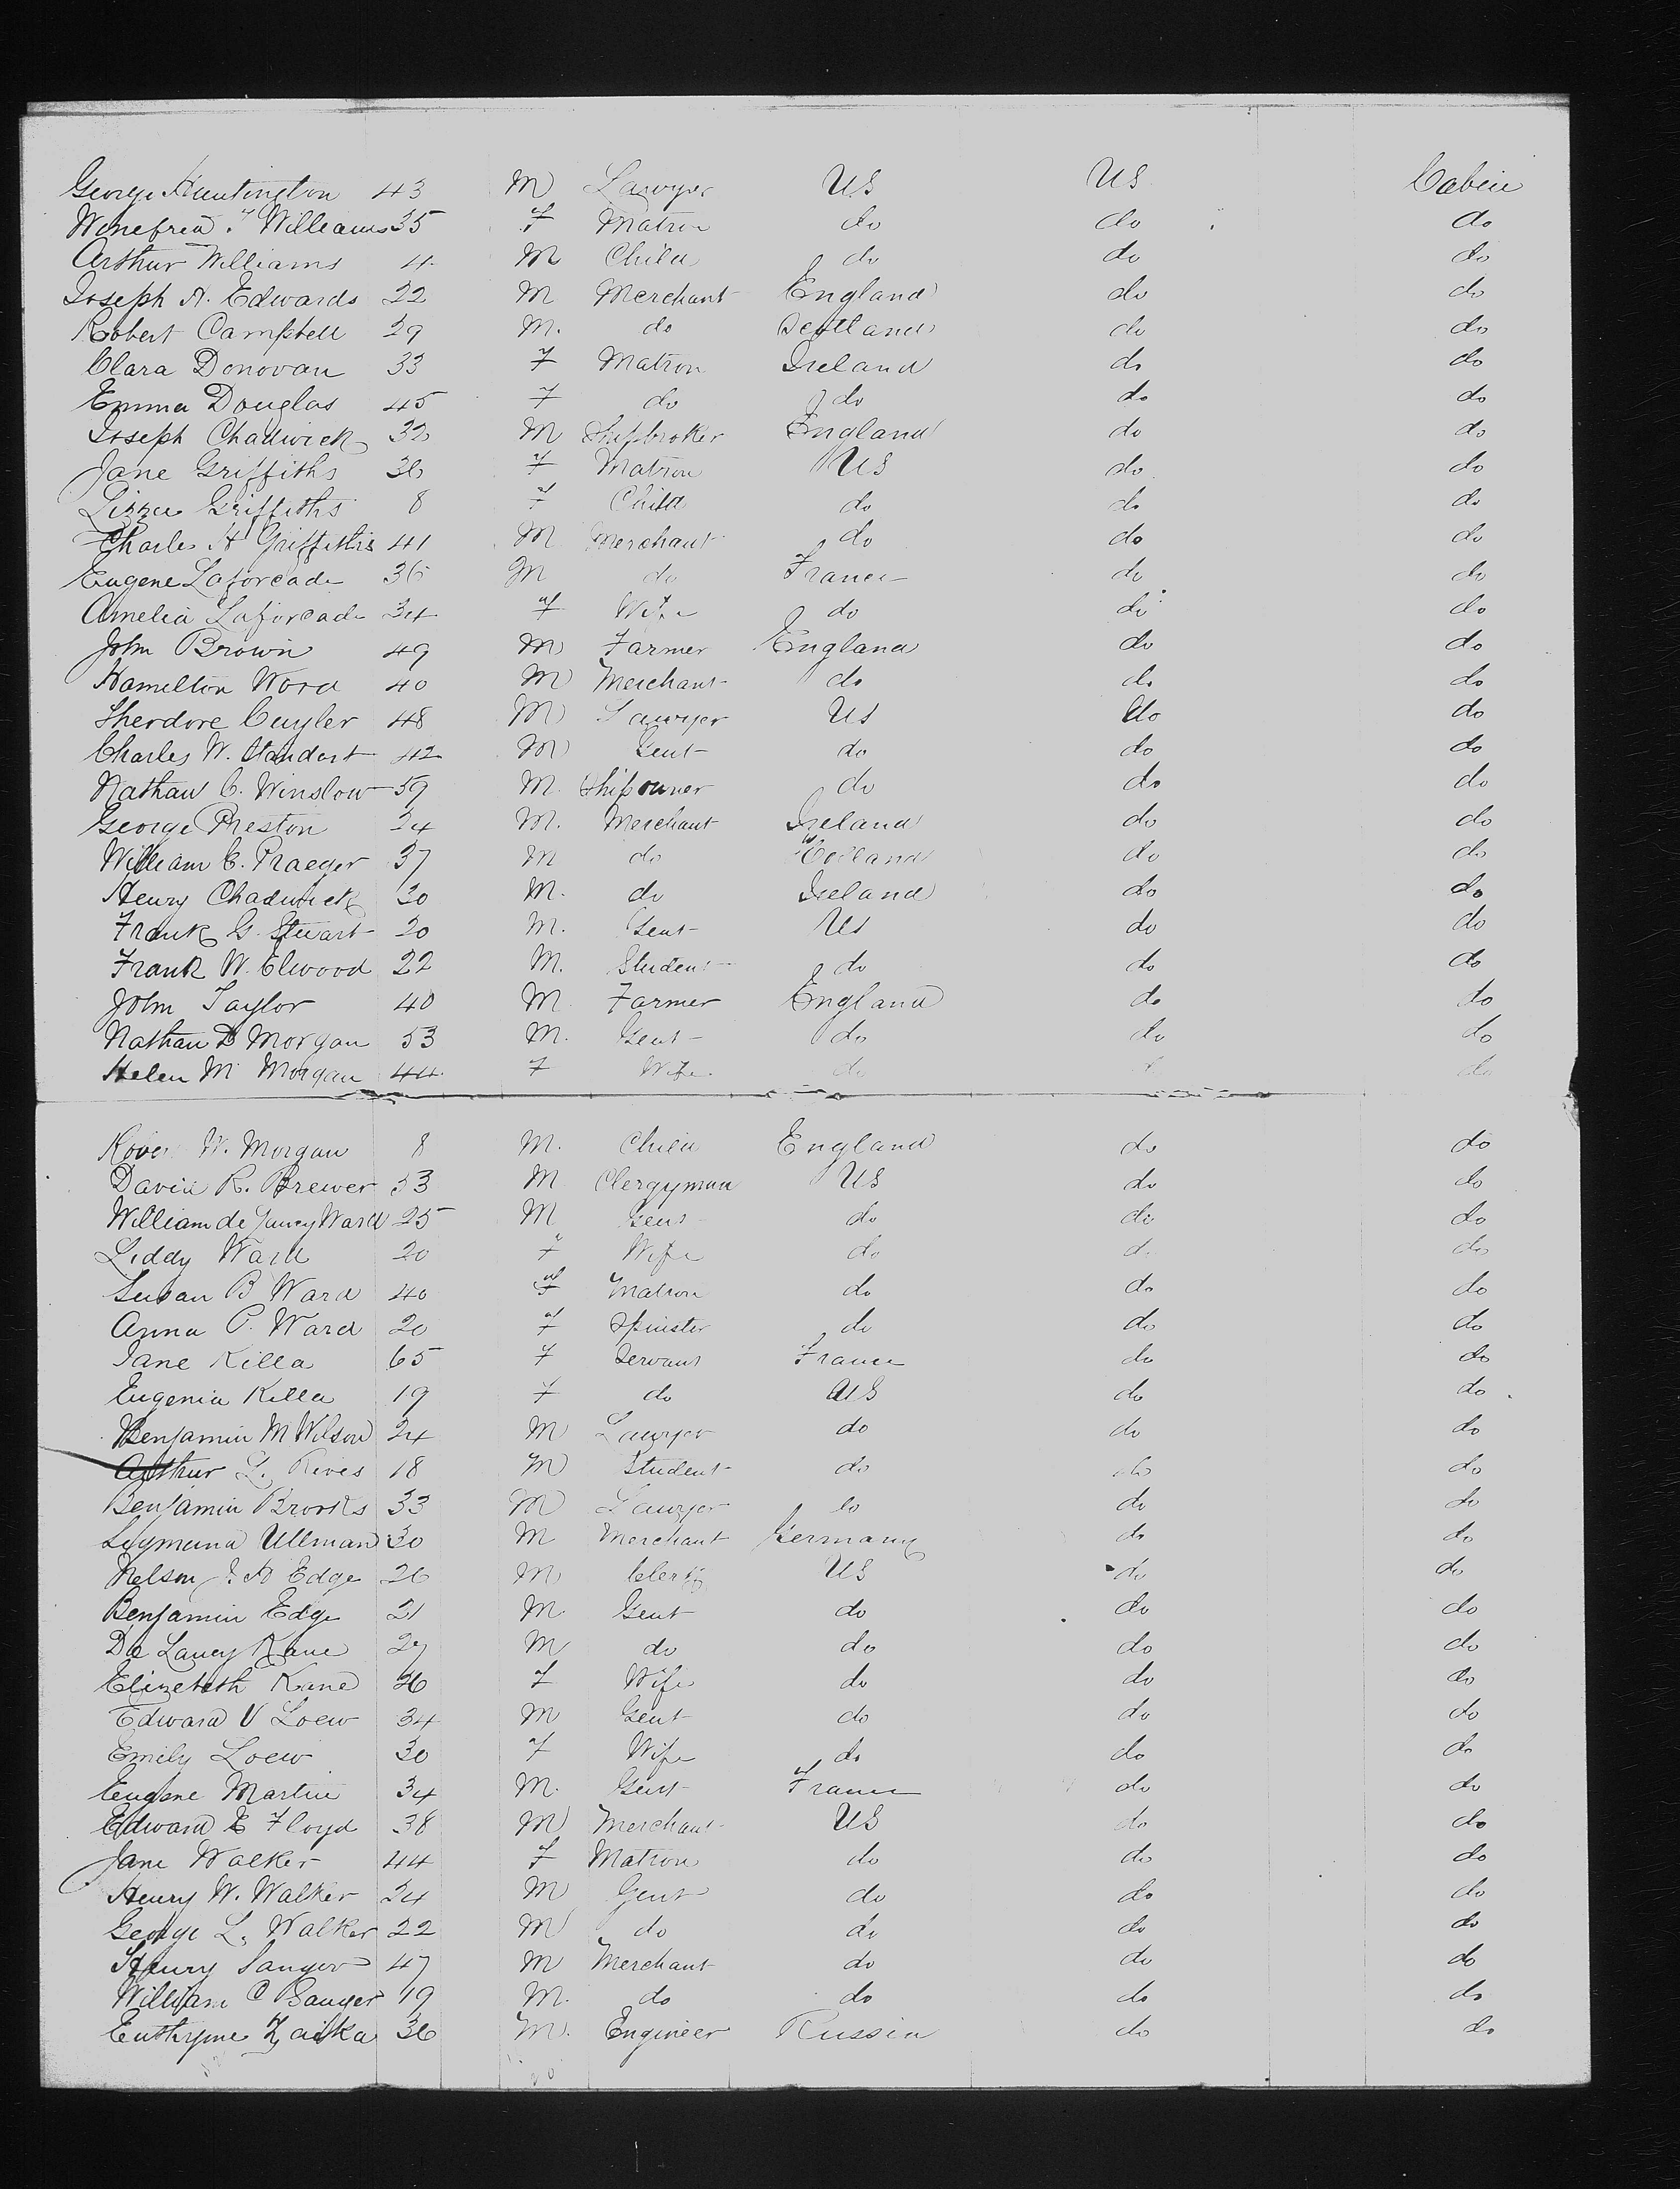 George Huntington 43 M Lawyer US US Cabin
Winefred Williams 35 F Matron do do do
Arthur Williams 4 M Child do do do
Joseph A. Edwards 22 M Merchant England do do
Robert Campbell 29 M. do Scotland do do
Clara Donovan 33 F Matron Ireland do do
Emma Douglas 45 F do do do do
Joseph Chadwick 32 M Shipbroker England do do
Jane Griffiths 36 F Matron US do do
Lizzie Griffiths 8 F Child do do do
Charles H Griffiths 41 M Merchant do do do
Eugene Laforcade 36 M do France do do
Amelia Laforcade 34 F Wife do do do
John Brown 49 M Farmer England do do
Hamilton Ward 40 M Merchant do do do
Theodore Cuyler 48 M Lawyer US do do
Charles W. Standart 42 M Gent do do do
Nathan C. Winslow 59 M. Shipowner do do do
George Preston 24 M. Merchant Ireland do do
William C. Praeger 37 M do Holland do do
Henry Chadwick 20 M. do Ireland do do
Frank G. Stewart 20 M. Gent US do do
Frank W. Elwood 22 M. Student do do do
John Taylor 40 M Farmer England do do
Nathan D Morgan 53 M. Gent do do do
Helen M Morgan 44 F Wife do do
W. Morgan 8 M. Child England do do
David R. Brewer 53 M Clergyman US do do
William de Lancy Ward 25 M Gent do do do
Liddy Ward 20 F Wife do d. do
Susan B Ward 40 F Matron do do do
Anna P. Ward 20 F Spinster do do do
Jane Killa 65 F Servant France do do
Eugenia Killa 19 F do US do do
Benjamin M Wilson 24 M Lawyer do do do
Arthur L. Rives 18 M Student do do do
Benjamin Brooks 33 M Lawyer do do do
Ullman 30 M Merchant Germany do do
Nelson J. H Edge 26 M Clerk US do do
Benjamin Edge 21 M Gent do do do
De Lancy Kane 27 M do do do do
Elizebeth Kane 26 F Wife do do do
Edward V Loew 34 M Gent do do do
Emily Loew 30 F Wife do do do
Eugene Martin 34 M. Gent France do do
Edward E Floyd 38 M Merchant US do do
Jane Walker 44 F Matron do do do
Henry W. Walker 24 M Gent do do do
George L. Walker 22 M do do do do
Henry Sanger 47 M Merchant do do do
William C Sanger 19 M. do do do do
36 M. Engineer Russia do do